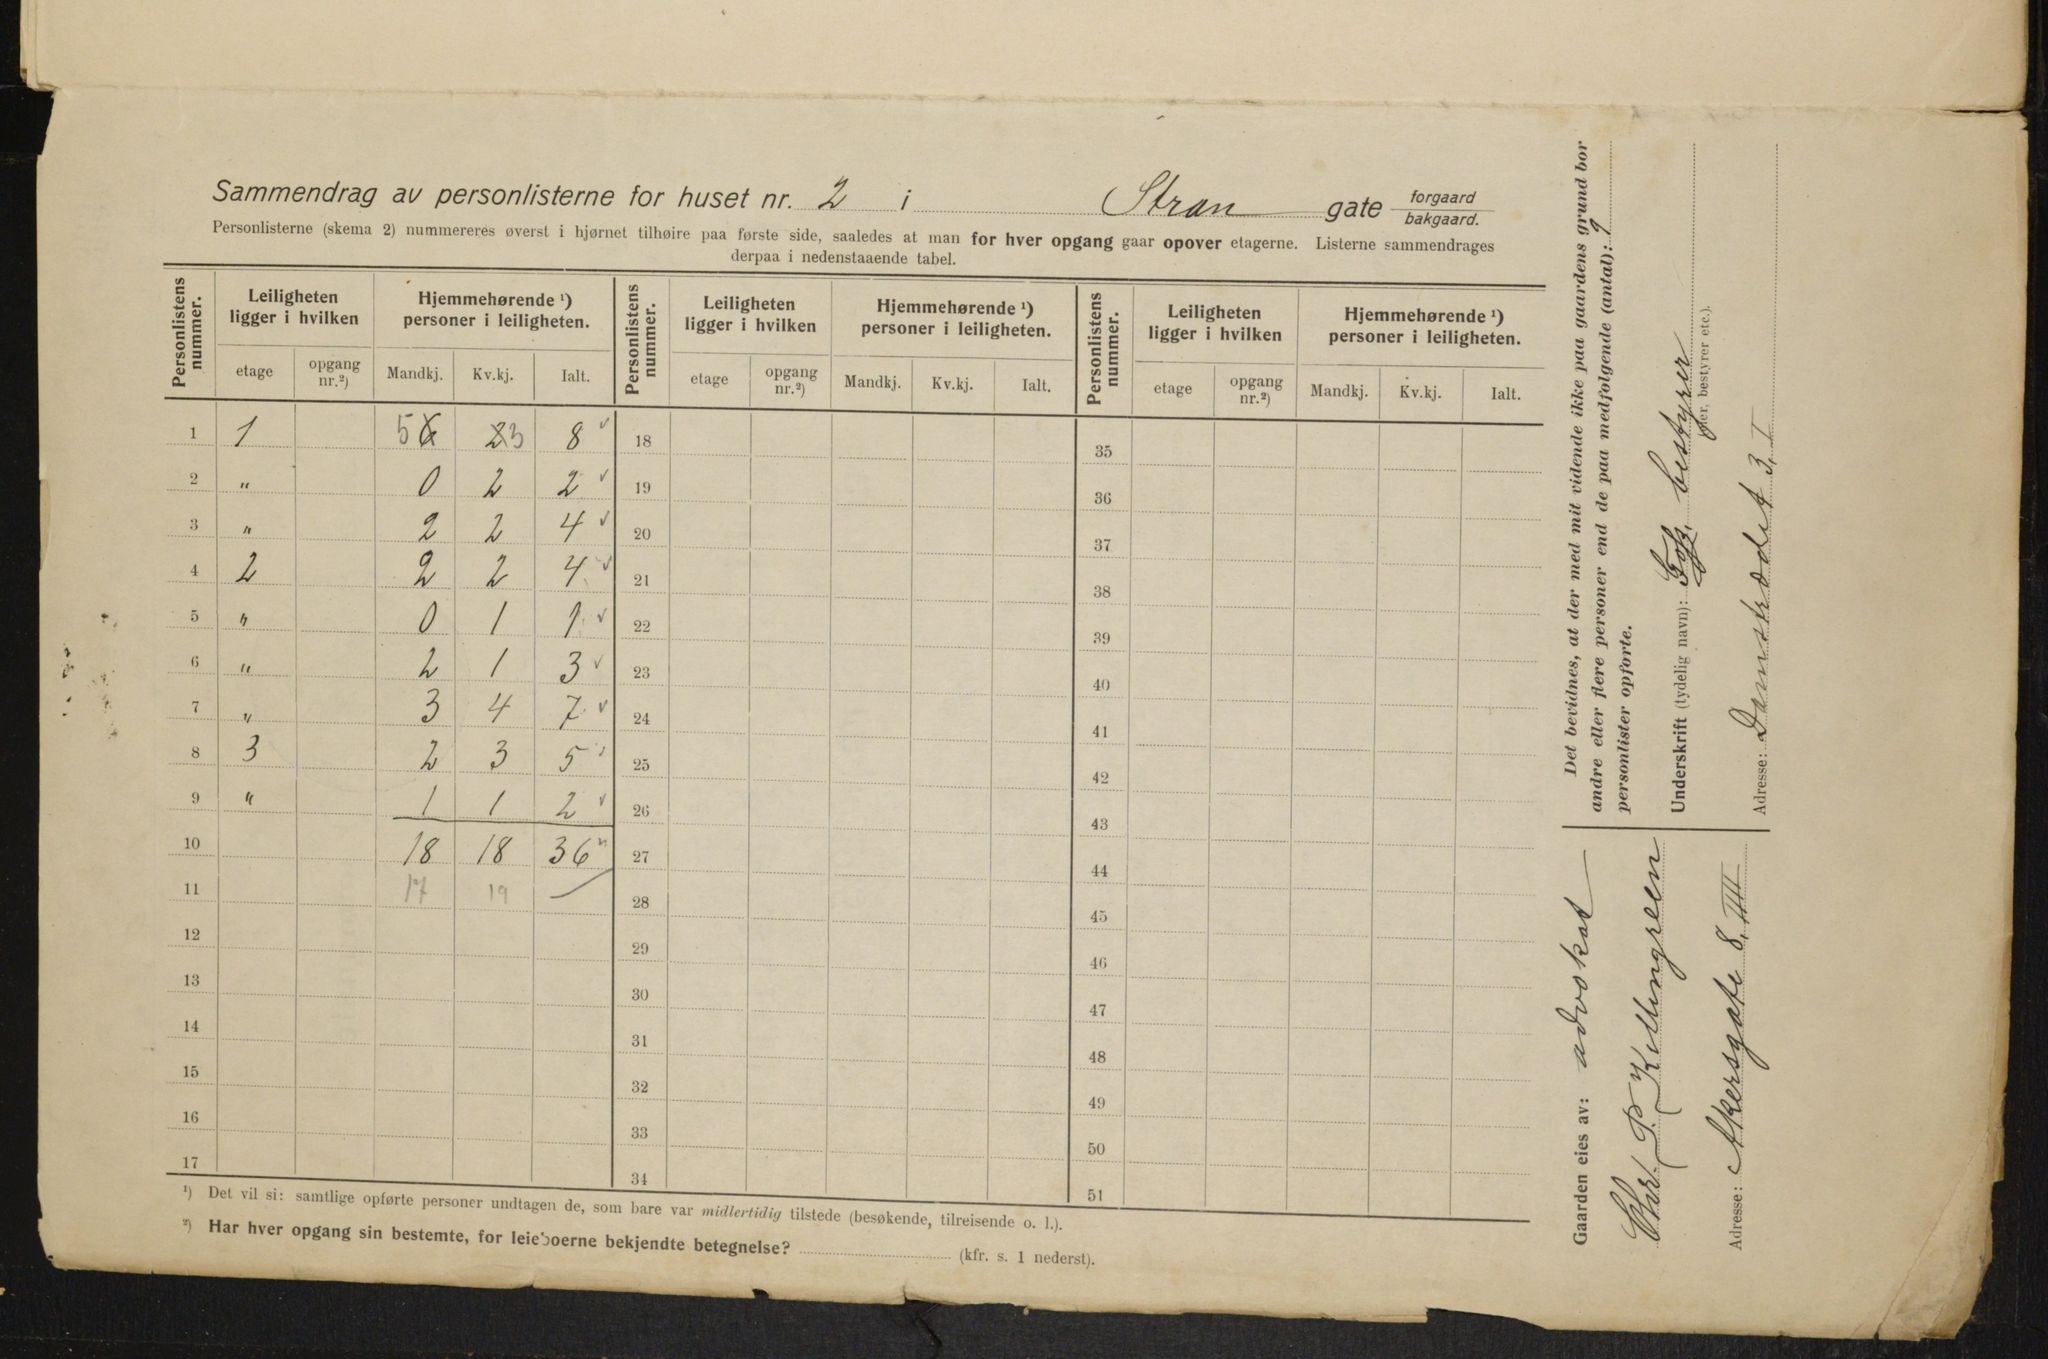 Sammendrag av personlisterne for huset nr. 2 i Stran gate forgaard bakgaard.
Personlisterne (skema 2) nummereres øverst i hjørnet tilhøire paa første side, saaledes at man for hver opgang gaar opover etagerne. Listerne sammendrages
derpaa i nedenstaaende tabel.
Personlistens nummer. Leiligheten ligger i hvilken Hjemmehørende ¹) personer i leiligheten. Personlistens nummer. Leiligheten ligger i hvilken Hjemmehørende ¹) personer i leiligheten. Personlistens nummer. Leiligheten ligger i hvilken Hjemmehørende ¹) personer i leiligheten.
etage opgang nr.²) Mandkj. Kv.kj. Ialt. etage opgang nr.²) Mandkj. Kv.kj. Ialt. etage opgang nr.²) Mandkj. Kv.kj. Ialt.
1 1 5 6 2 3 8 18 35
2 " 0 2 2 19 36
3 " 2 2 4 20 37
4 2 2 2 4 21 38
5 " 0 1 1 22 39
6 " 2 1 3 23 40
7 " 3 4 7 24 41
8 3 2 3 5 25 42
9 " 1 1 2 26 43
10 18 18 36 27 44
11 17 19 28 45
12 29 46
13 30 47
14 31 48
15 32 49
16 33 50
17 34 51
¹) Det vil si: samtlige opførte personer undtagen de, som bare var midlertidig tilstede (besøkende, tilreisende o. l.).
²) Har hver opgang sin bestemte, for leieboerne bekjendte betegnelse? (kfr. s. 1 nederst).
Det bevidnes, at der med mit vidende ikke paa gaardens grund bor
andre eller flere personer end de paa medfølgende (antal): 9
personlister opførte.
Underskrift (tydelig navn): bestyrer
(eier, bestyrer etc.).
Adresse: Damstrædet 3, I
Gaarden eies av: advokat
Chr. P. Killingreen
Adresse: Akersgate 8, III